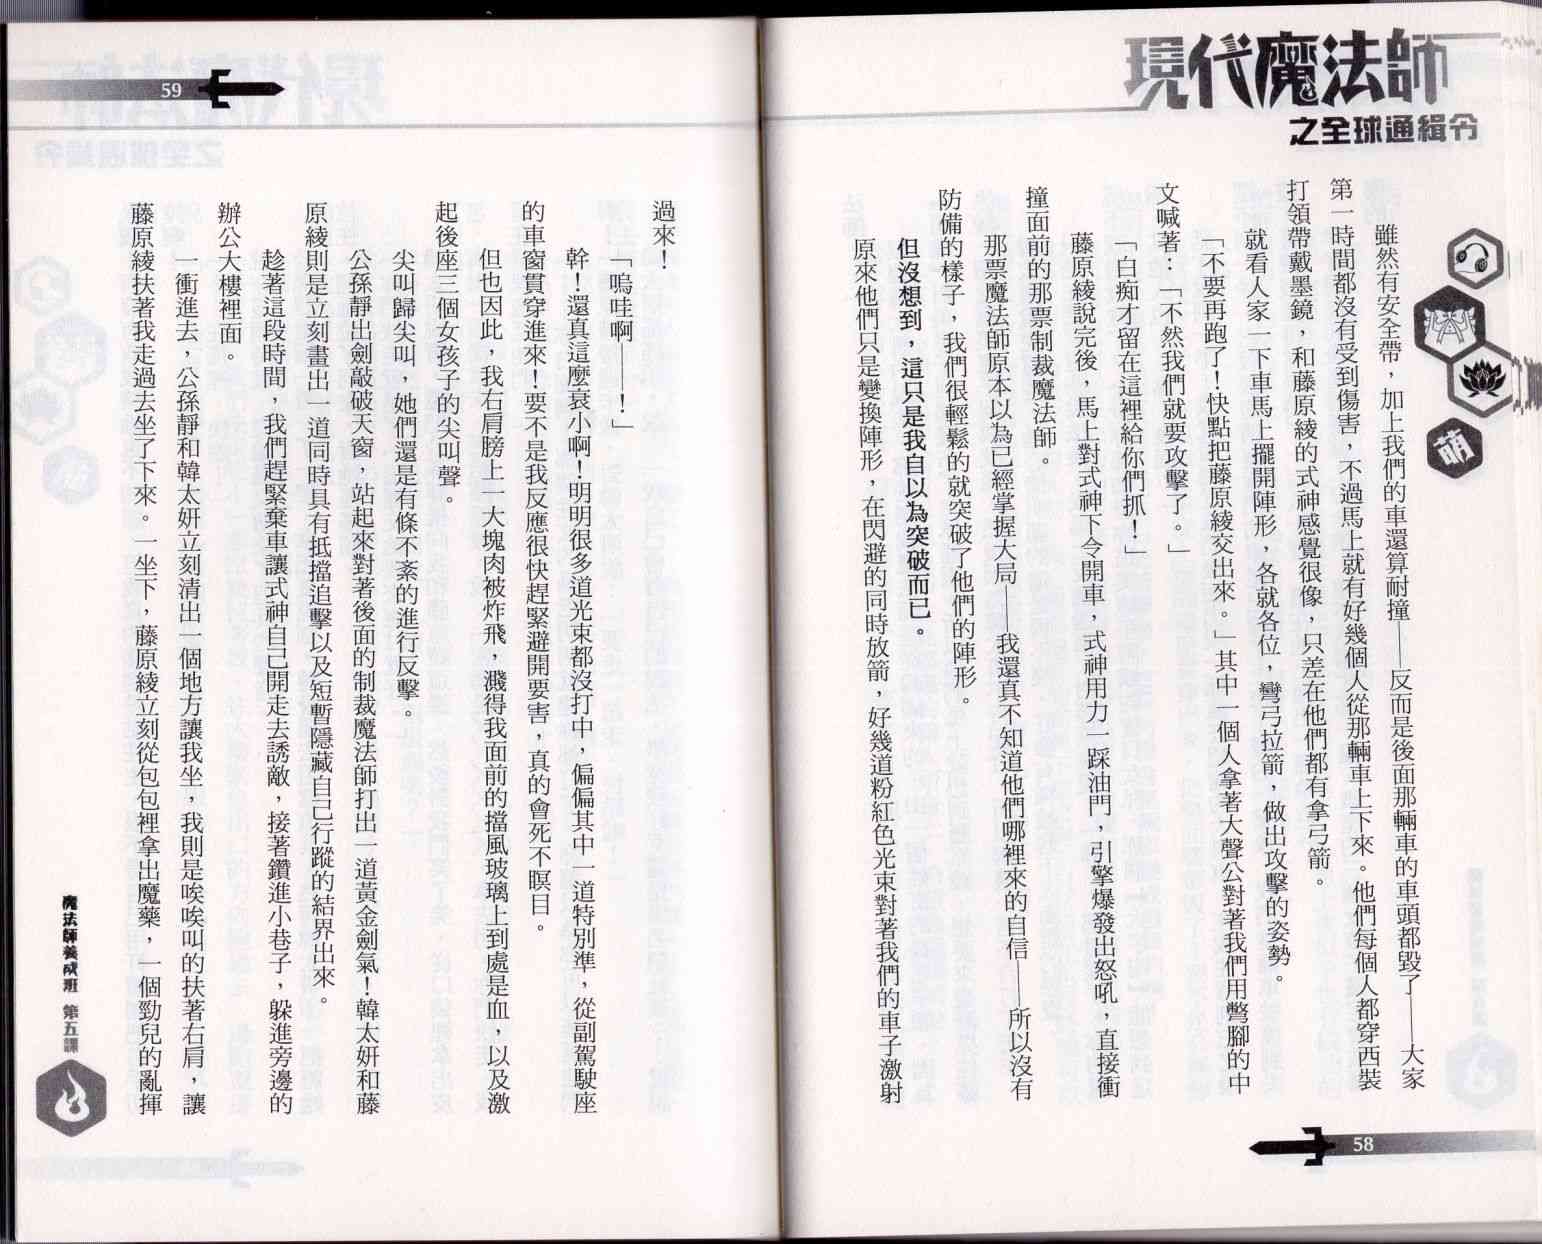 現代魔法師
之全球通緝令
萌
雖然有安全帶，加上我們的車還算耐撞——反而是後面那輛車的車頭都毀了——大家
第一時間都沒有受到傷害，不過馬上就有好幾個人從那輛車上下來。他們每個人都穿西裝
打領帶戴墨鏡，和藤原綾的式神感覺很像，只差在他們都有拿弓箭。
就看人家一下車馬上擺開陣形，各就各位，彎弓拉箭，做出攻擊的姿勢。
「不要再跑了！快點把藤原綾交出來。」其中一個人拿著大聲公對著我們用彆腳的中
文喊著：「不然我們就要攻擊了。」
「白痴才留在這裡給你們抓！」
藤原綾說完後，馬上對式神下令開車，式神用力一踩油門，引擎爆發出怒吼，直接衝
撞面前的那票制裁魔法師。
那票魔法師原本以為已經掌握大局——我還真不知道他們哪裡來的自信——所以沒有
防備的樣子，我們很輕鬆的就突破了他們的陣形。
但沒想到，這只是我自以為突破而已。
原來他們只是變換陣形，在閃避的同時放箭，好幾道粉紅色光束對著我們的車子激射
58
59
過來！
「嗚哇啊——！」
幹！還真這麼衰小啊！明明很多道光束都沒打中，偏偏其中一道特別準，從副駕駛座
的車窗貫穿進來！要不是我反應很快趕緊避開要害，真的會死不瞑目。
但也因此，我右肩膀上一大塊肉被炸飛，濺得我面前的擋風玻璃上到處是血，以及激
起後座三個女孩子的尖叫聲。
尖叫歸尖叫，她們還是有條不紊的進行反擊。
公孫靜出劍敲破天窗，站起來對著後面的制裁魔法師打出一道黃金劍氣！韓太妍和藤
原綾則是立刻畫出一道同時具有抵擋追擊以及短暫隱藏自己行蹤的結界出來。
趁著這段時間，我們趕緊棄車讓式神自己開走去誘敵，接著鑽進小巷子，躲進旁邊的
辦公大樓裡面。
一衝進去，公孫靜和韓太妍立刻清出一個地方讓我坐，我則是唉唉叫的扶著右肩，讓
藤原綾扶著我走過去坐了下來。一坐下，藤原綾立刻從包包裡拿出魔藥，一個勁兒的亂揮
魔法師養成班 第五課